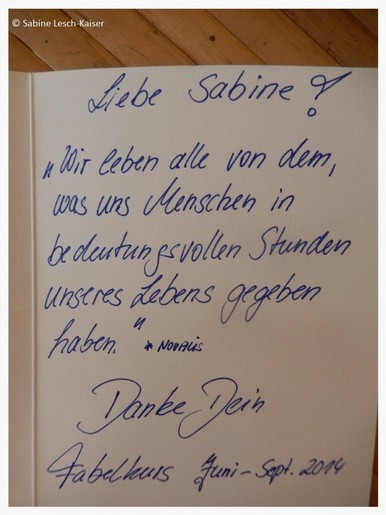 © Sabine Lesch-Kaiser
Liebe Sabine!
„Wir leben alle von dem,
was uns Menschen in
bedeutungsvollen Stunden
unseres Lebens gegeben
haben." * NOVALIS
Danke, Dein
Fabelkurs Juni - Sept. 2014